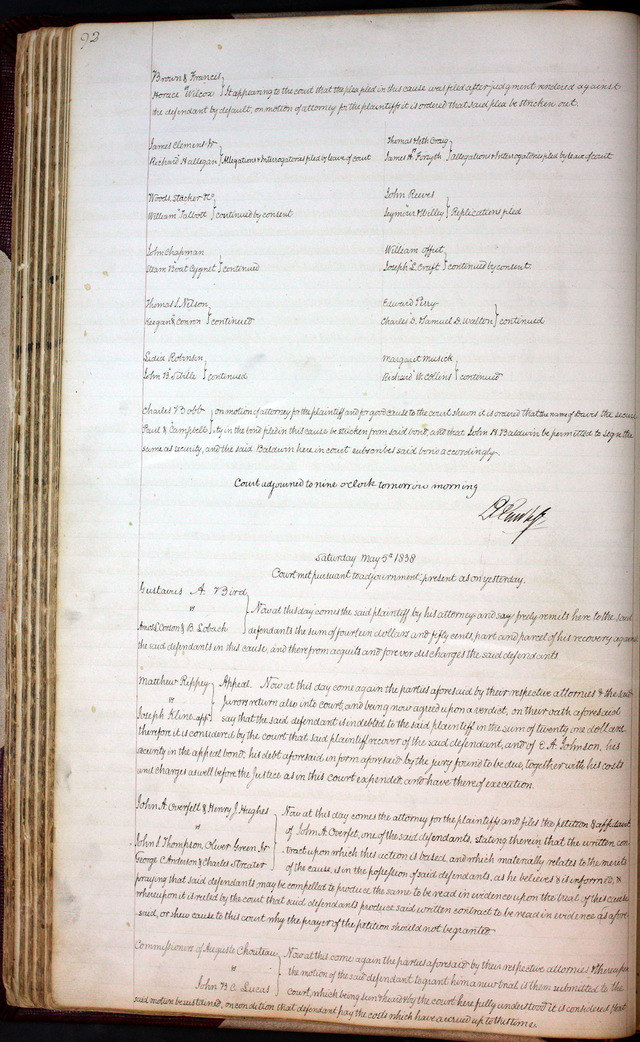 92
Brown & Francis
Horace Wilcox } It appearing to the court that the plea pled in this cause was filed after judgment rendered against
the defendant by default, on motion of attorney for the plaintiff it is ordered that said plea be stricken out.
James Clemens Jr
Richard Hallegan } Allegations & Interrogatories filed by leave of court
Thomas & Seth Craig
James H. Forsyth } allegations & Interrogatories filed by leave of court
Woods, Stacker & Co
William Talbott } continued by consent
John Reeves
Seymour & Willey } Replications filed
John Chapman
Steam Boat Cygnet } continued
William Offut
Joseph L. Craft } continued by consent
Thomas L. Nelson,
Keegan & Connor } continued
Edward Perry
Charles D. & Samuel D. Walton } continued
Lydia Robnson
John B. } continued
Margaret Musick
Richard W. Collens } continued
Charles V Bobb } on motion of attorney for the plaintiff and for good cause to the court shewn it is ordered that the name of Davis the secu
Paul & Campbell } ty in the bond filed in this cause be stricken from said bond, and that John N. Baldwin be permitted to sign the
same as security, and the said Baldwin here in court subscribes said bond accordingly.
Court adjourned to nine o'clock tomorrow morning
Saturday May 5th 1838
Court met pursuant to adjournment; present as on yesterday.
Gustavus A. Bird
" } Now at this day comes the said plaintiff by his attorney and say freely remits here to the said
Amos L. Corson & B. Lobach } defendants the sum of fourteen dollars and fifty cents, part and parcel of his recovery against
the said defendants in this cause, and therefrom acquits and forever discharges the said defendants
Matthew Rippey } Appeal. Now at this day come again the parties aforesaid by their respective attornies & the said
" } jurors return also into court, and being now agreed upon a verdict, on their oath aforesaid
Joseph Kline appt } say that the said defendant is indebted to the said plaintiff in the sum of twenty one dollars
therefore it is considered by the court that said plaintiff recover of the said defendant, and of E. A. Johnson, his
security in the appeal bond, his debt aforesaid in form aforesaid by the jury found to be due, together with his costs
and charges as well before the Justice as in this court expended and have thereof execution.
John A. Overfelt & Henry J. Hughes } Now at this day comes the attorney for the plaintiffs and files the petition & affidavit
" } of John A. Overfet, one of the said defendants, stating therein that the written con
John S Thompson, Oliver Green Jr } tract upon which this action is based, and which materally relates to the merits
George C. Anderson & Charles Strater } of the cause, is in the possession of said defendants, as he believes & is informed, &
praying that said defendants may be compelled to produce the same to be read in evidence upon the trial of this cause
whereupon it is ruled by the court that said defendants produce said written contract to be read in evidence as afore
said, or shew cause to this court why the prayer of the petition should not be granted
Commissioners of Auguste Chouteau } Now at this come again the parties aforesaid by their respective attornies & thereupon
" } the motion of the said defendant to grant him a new trial is them submitted to the
John B. C. Lucas } court, which being seen & heard by the court here fully understood it is considered that
said motion be sustained, on condition that defendant pay the costs which have accrued up to this time.